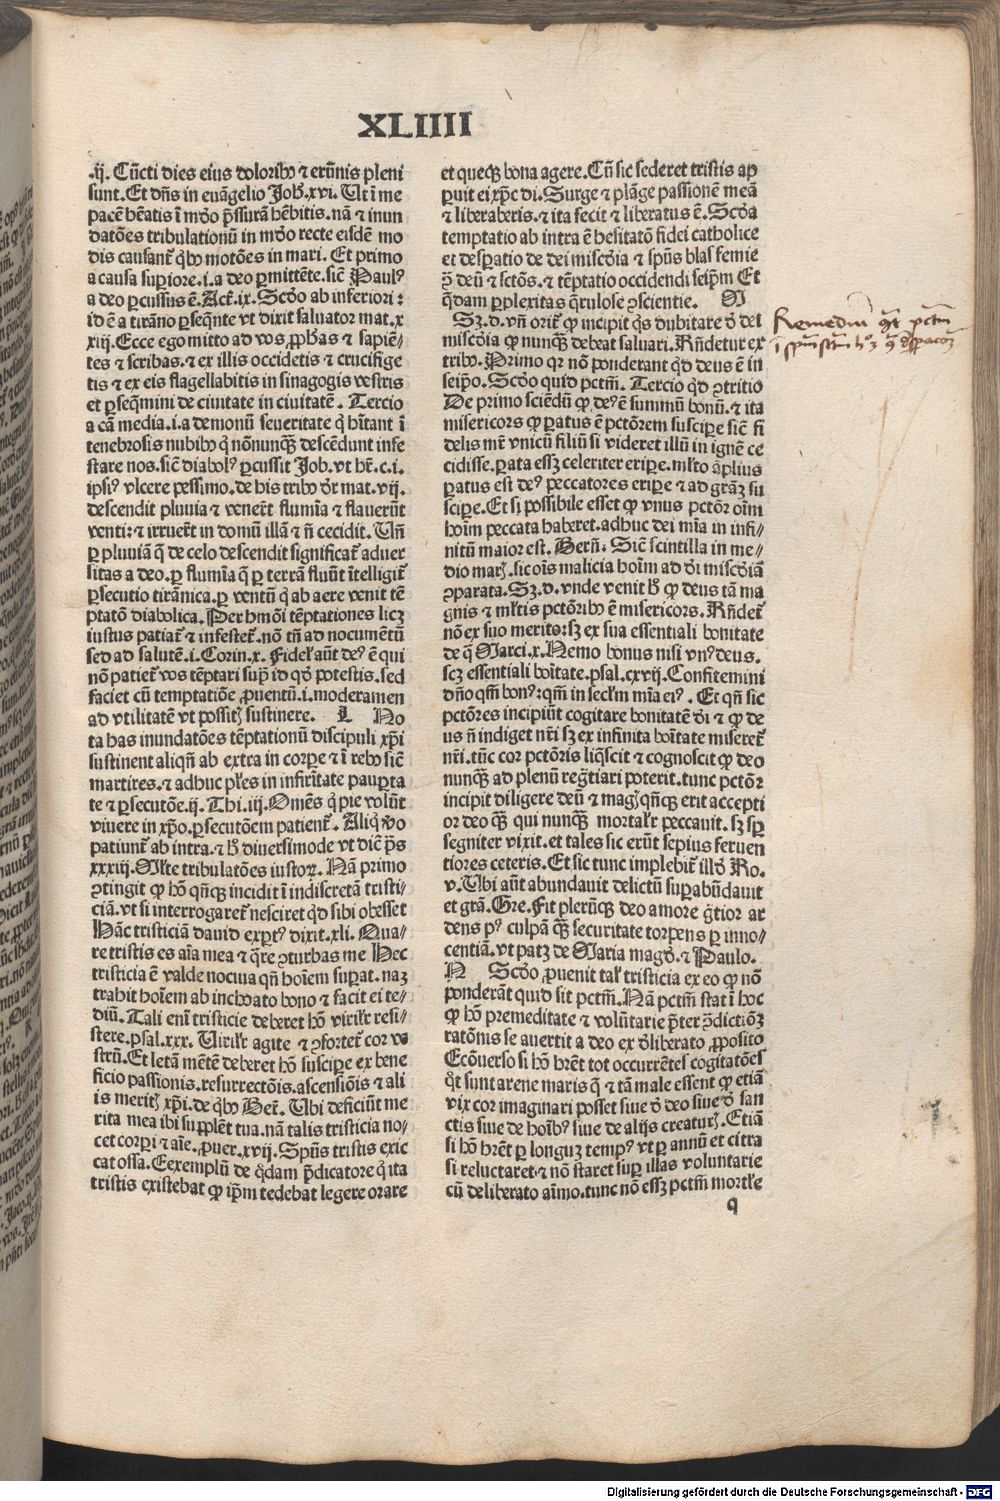 XLIIII
.ij. Cūcti dies eius doloribꝰ ⁊ erūnis pleni
sunt. Et dn̄s in euāgelio Joh̄.xvi. Ut ī me
pacē hēatis ī mūdo p̄ssurā hēbitis. nā ⁊ inun
datōes tribulationū in mūdo recte eisdē mo
dis causant̄ qͥbꝰ motōes in mari. Et primo
a causa suꝑiore .i. a deo ꝑmittēte. sic̄ Paulꝰ
a deo ꝑcussus ē. Act̄.ix. Scd̄o ab inferiori :
id ē a tirāno ꝑseqn̄te vt dixit saluator mat.x
xiij. Ecce ego mitto ad vos ,ꝓphas ⁊ sapiē-
tes ⁊ scribas. ⁊ ex illis occidetis ⁊ crucifige
tis ⁊ ex eis flagellabitis in sinagogis vestris
et ꝑseqͥmini de ciuitate in ciuitatē . Tercio
a cā media .i. a demonū seueritate qͥ hītant ī
tenebrosis nubibꝰ qͥ nōnunqͣꝫ descēdunt infe
stare nos. sic̄ diabolꝰ ꝑcussit Job. vt hr̄. c.i.
ipsiꝰ vlcere pessimo. de his tribꝰ dr̄ mat. vij.
descendit pluuia ⁊ venert̄ flumīa ⁊ flauerūt
venti: ⁊ irruert̄ in domū illā ⁊ n̄ cecidit. Un̄
ꝑ pluuiā q̄ de celo descendit significat̄ aduer
sitas a deo. ꝑ flumīa q̄ ꝑ terrā fluūt ītelligit̄
ꝑsecutio tirānica. ꝑ ventū qͥ ab aere venit tē
ptatō diabolica. Per hmōi tēptationes licꝫ
iustus patiat̄ ⁊ infestet̄. nō tn̄ ad nocumētū
sed ad salutē .i. Corin. x. Fidel̄ aūt deꝰ ē qui
nō patiet̄ vos tēptari supͣ id qd̄ potestis. sed
faciet cū temptatiōe ,ꝓuentū .i. moderamen
ad vtilitatē vt possitꝭ sustinere. L No
ta has inundatōes tēptationū discipuli xp̄i
sustinent aliqn̄ ab extra in corpe ⁊ ī rebꝰ sic̄
martires. ⁊ adhuc pl̄es in infirītate pauꝑta
te ⁊ ꝑsecutōe. ij. Thi. iij. Omēs qͥ pie volūt
viuere in xp̄o. ꝑsecutōem patient̄. Aliqͥ vo
patiunt̄ ab intra. ⁊ h̄ diuersimode vt dic̄ ps̄
xxxiij. Ml̄te tribulatōes iustoꝝ. Nā primo
ꝯtingit ꝙ hō qn̄cqꝫ incidit ī indiscretā tristi-
ciā. vt si interrogaret̄ nesciret qd̄ sibi obesset
Hāc tristiciā dauid exꝑtꝰ dixit. xli. Qua-
re tristis es aīa mea ⁊ qͣre ꝯturbas me Hec
tristicia ē valde nociua qn̄ hoīem suꝑat. naꝫ
trahit hoīem ab inchoato bono ⁊ facit ei te-
diū. Tali enī tristicie deberet hō virilr̄ resi-
stere. psal.xxx. Uirilr̄ agite ⁊ ꝯfortet̄ cor ve
strū. Et letā mētē deberet hō suscipe ex bene
ficio passionis. resurrectōis. ascensiōis ⁊ ali
is meritꝭ xp̄i. de qͥbꝰ Ber̄. Ubi deficiūt me
rita mea ibi supplēt tua. nā talis tristicia no-
cet corpi ⁊ aīe. ,ꝓuer. xvij. Spūs tristis exic
cat ossa. Exemplū de qͦdam p̄dicatore qͥ ita
tristis existebat ꝙ ip̄m tedebat legere orare
et quecqꝫ bona agere. Cū sic sederet tristis ap
ꝑuit ei xp̄c di. Surge ⁊ plāge passionē meā
⁊ liberaberis. ⁊ ita fecit ⁊ liberatus ē. Scd̄a
temptatio ab intra ē hesitatō fidei catholice
et despatio de dei miscd̄ia ⁊ spūs blasfemie
ꝯ̄ deū ⁊ sctōs. ⁊ tēptatio occidendi seip̄m Et
qͥdam ꝑplexitas qͣrulose ꝯscientie. M
Sꝫ .d. vn̄ orit̄ ꝙ incipit qͥs dubitare d̄ dei
miscd̄ia ꝙ nunqͣꝫ debeat saluari. Rn̄detur ex
tribꝰ. Primo qꝛ nō ponderant qd̄ deus ē in
seip̄o. Scd̄o quid pctm̄. Tercio qd̄ ꝯtritio
De primo sciēdū ꝙ deꝰ ē summū bonū. ⁊ ita
misericors ꝙ ꝑatus ē pctōrem suscipe sic̄ fi
delis mr̄ vnicū filiū si videret illū in ignē ce
cidisse. ꝑata essꝫ celeriter eripe. ml̄to āplius
ꝑatus est deꝰ peccatores eripe ⁊ ad grāꝫ su
scipe. Et si possibile esset ꝙ vnus pctōr oīm
hoīm peccata haberet. adhuc dei mīa in infi-
nitū maior est. Bern̄. Sic̄ scintilla in me-
dio marꝭ. sic oīs malicia hoīm ad dei miscd̄iā
ꝯparata. Sꝫ .d. vnde venit h̄ ꝙ deus tā ma
gnis ⁊ ml̄tis pctōribꝰ ē misericors. Rn̄det̄
nō ex suo merito: sꝫ ex sua essentiali bonitate
de qͣ Marci. x. Nemo bonus nisi vnꝰ deus.
scꝫ essentiali boītate. psal. cxvij. Confitemini
dn̄o qm̄ bonꝰ: qm̄ in secl̄m mīa eiꝰ. Et qn̄ sic
pctōres incipiūt cogitare bonitatē dei ⁊ ꝙ de
us n̄ indiget nr̄i sꝫ ex infinita boītate miseret̄
nr̄i. tūc cor pctōris liqͥscit ⁊ cognoscit ꝙ deo
nunqͣꝫ ad plenū regr̄tiari poterit. tunc pctōr
incipit diligere deū ⁊ magꝭ qn̄cqꝫ erit accepti
or deo qͣꝫ qui nunqͣꝫ mortalr̄ peccauit. sꝫ sp̄
segniter vixit. et tales sic erūt sepius feruen
tiores ceteris. Et sic tunc implebit̄ illd̄ Ro.
v. Ubi aūt abundauit delictū suꝑabūdauit
et grā. Gre. Fit plerūqꝫ deo amore gr̄tior ar
dens pꝰ culpā qͣꝫ securitate torpens ꝑ inno-
centiā. vt patꝫ de Maria magd̄. ⁊ Paulo.
N Scd̄o ,ꝓuenit tal̄ tristicia ex eo ꝙ nō
ponderāt quid sit pctm̄. Nā pctm̄ stat ī hoc
ꝙ hō premeditate ⁊ volūtarie p̄ter ꝯ̄dictiōꝫ
ratōnis se auertit a deo ex deliberato ,ꝓposito
Ecōuerso si hō hr̄et tot occurrētes cogitatōes
qͦt sunt arene maris q̄ ⁊ tā male essent ꝙ etiā
vix cor imaginari posset siue d̄ deo siue d̄ san
ctis siue de hoībꝰ siue de alijs creaturꝭ. Etiā
si hō hr̄et ꝑ longuꝫ tempꝰ vt ꝑ annū et citra
si reluctaret̄ ⁊ nō staret suꝑ illas voluntarie
cū deliberato aīmo. tunc nō essꝫ pctm̄ mortl̄e
q
Remediū
Digitalisierung gefördert durch die Deutsche Forschungsgemeinschaft - DFG